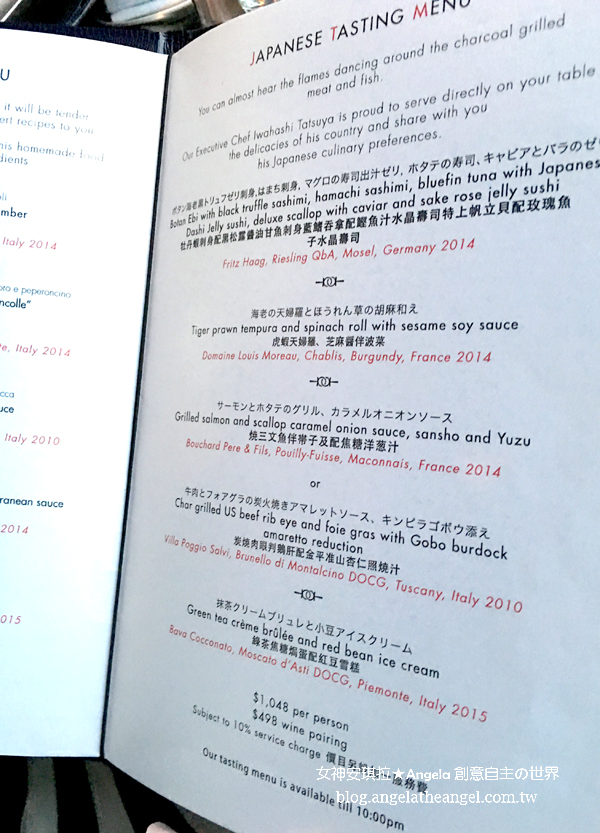 U
it will be tender
ert recipes to you
his homemade food
dients
oli
mber
Italy 2014
oro e peperoncino
ncolle"
te, Italy 2014
cca
uce
Italy 2010
rranean sauce
2014
2015
JAPANESE TASTING MENU
You can almost hear the flames dancing around the charcoal grilled
meat and fish.
Our Executive Chef Iwahashi Tatsuya is proud to serve directly on your table
the delicacies of his country and share with you
his Japanese culinary preferences.
ボタン海老黒トリュフゼリ刺身,はまち刺身, マグロの寿司出汁ゼリ, ホタテの寿司、キャビアとバラのゼ
Botan Ebi with black truffle sashimi, hamachi sashimi, bluefin tuna with Japanes
Dashi Jelly sushi, deluxe scallop with caviar and sake rose jelly sushi
牡丹蝦刺身配黑松露醬油甘魚刺身藍鰭吞拿配鰹魚汁水晶壽司特上帆立貝配玫瑰魚
子水晶壽司
Fritz Haag, Riesling QbA, Mosel, Germany 2014
海老の天婦羅とほうれん草の胡麻和え
Tiger prawn tempura and spinach roll with sesame soy sauce
虎蝦天婦羅、芝麻醬伴波菜
Domaine Louis Moreau, Chablis, Burgundy, France 2014
サーモンとホタテのグリル、カラメルオニオンソース
Grilled salmon and scallop caramel onion sauce, sansho and Yuzu
燒三文魚伴帶子及配焦糖洋葱汁
Bouchard Pere & Fils, Pouilly-Fuisse, Maconnais, France 2014
or
牛肉とフォアグラの炭火焼きアマレットソース、キンピラゴボウ添え
Char grilled US beef rib eye and foie gras with Gobo burdock
amaretto reduction
炭燒肉眼判鵝肝配金平准山杏仁照燒汁
Villa Poggio Salvi, Brunello di Montalcino DOCG, Tuscany, Italy 2010
抹茶クリームブリュレと小豆アイスクリーム
Green tea crème brûlée and red bean ice cream
綠茶焦糖焗蛋配紅豆雪糕
Bava Cocconato, Moscato d'Asti DOCG, Piemonte, Italy 2015
$1,048 per person
$498 wine pairing
Subject to 10% service charge 價目另 服務費
Our tasting menu is available till 10:00pm
女神安琪拉★Angela 創意自主の世界
blog.angelatheangel.com.tw